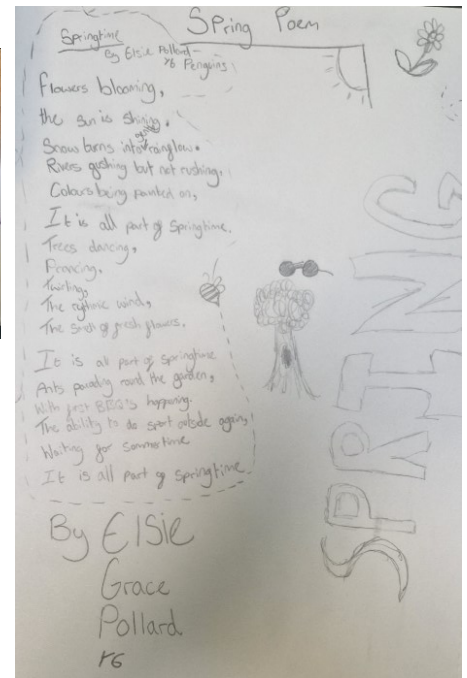 Spring Poem
Springtime
By Elsie Pollard -
Y6 Penguins
Flowers blooming,
the sun is shining.
Snow turns into a rainglow.
Rivers gushing but not rushing,
Colours being painted on,
It is all part of Springtime.
Trees dancing,
Prancing,
Twirling,
The rythmic wind,
The smell of fresh flowers.
It is all part of springtime
Ants parading round the garden,
With first BBQ's happening.
The ability to do sport outside again,
Waiting for sommertime
It is all part of springtime
SPRING
By Elsie
Grace
Pollard
Y6